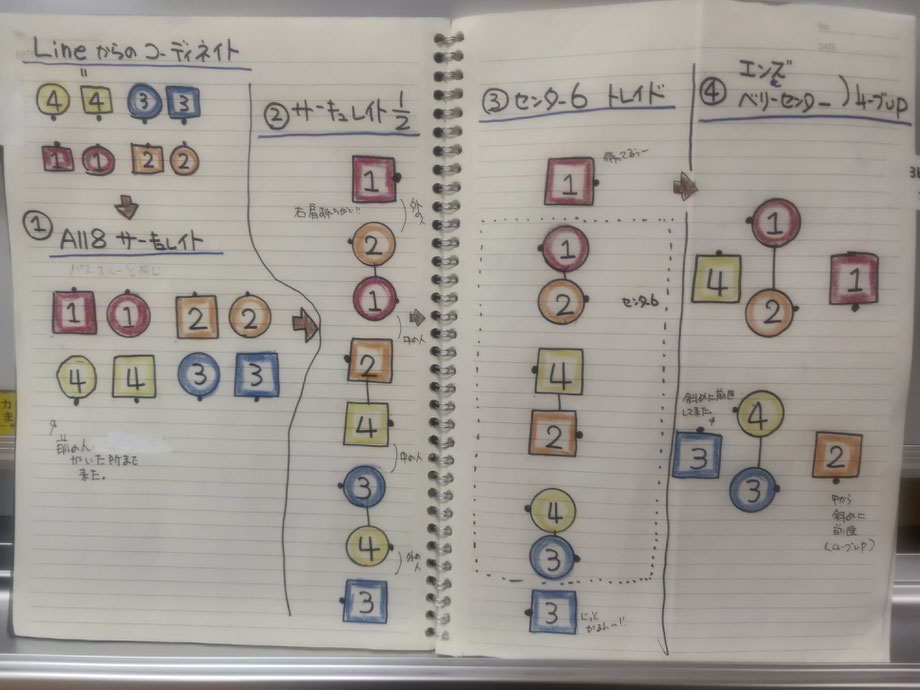 Lineからのコーディネイト
4 4 3 3
1 1 2 2
① All8 サーキュレイト
パススルーと同じ
1 1 2 2
4 4 3 3
前の人
がいた所まで
来た。
② サーキュレイト 1/2
1
右肩すれちがい!!
外の人
2
1
中の人
2
4
中の人
3
4
外の人
3
③ センター6 トレイド
待ってるぅ〜
1
1
2
センタ6
4
2
4
3
3
じっと
がまん〜!!
④ エンズと
ベリーセンター ムーブup
1
4
2
1
斜めに前進
して来た。
4
3
3
2
中から
斜めに
前進
(ムーブup)